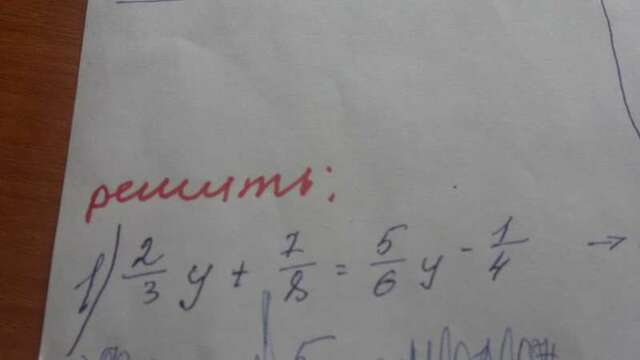 решить:
1) 2/3 y + 7/8 = 5/6 y - 1/4 →